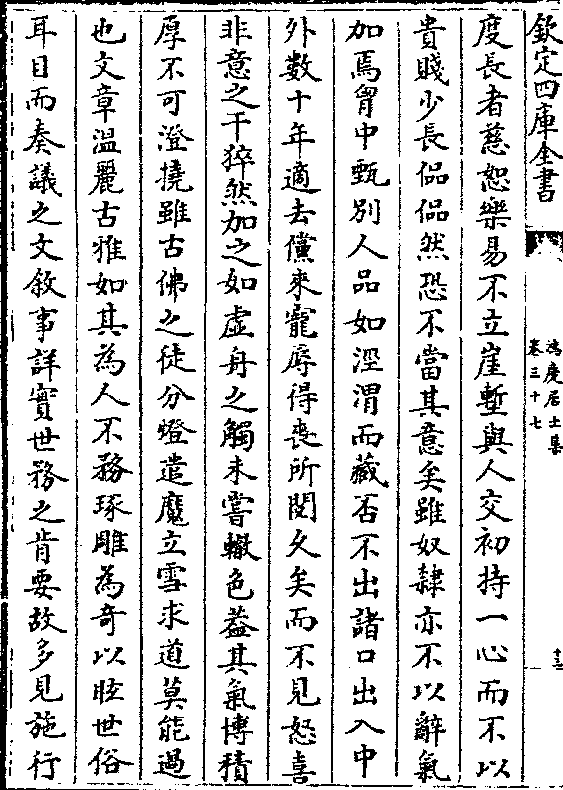 欽定四庫全書
鴻慶居士集
卷三十七
十三
度長者慈恕樂易不立崖塹與人交初持一心而不以
貴賤少長偘偘然恐不當其意矣雖奴隸亦不以辭氣
加焉胷中甄别人品如涇渭而藏否不出諸口出入中
外數十年適去儻來寵辱得喪所閱久矣而不見怒喜
非意之干猝然加之如虛舟之觸未嘗轍色葢其氣博積
厚不可澄撓雖古佛之徒分燈遣魔立雪求道莫能過
也文章温麗古雅如其為人不務琢雕為奇以眩世俗
耳目而奏議之文敘事詳實世務之肯要故多見施行